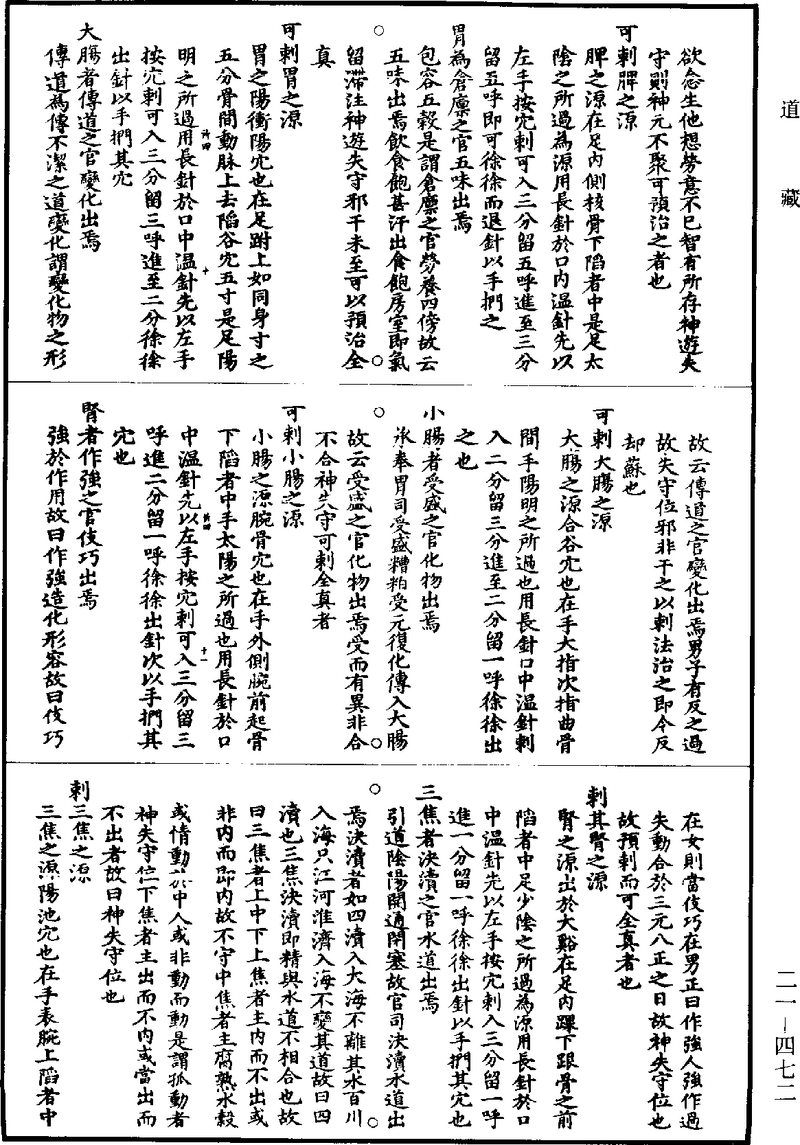 道藏
欲念生他想勞意不已智有所存神遊失
守則神元不聚可預治之者也
可刺脾之源
脾之源在足內側核骨下陷者中是足太
陰之所過為源用長針於口內溫針先以
左手按穴刺可入三分留五呼進至三分
留五呼即可徐徐而退針以手捫之
胃為倉廩之官五味出焉
包容五穀是謂倉廩之官勞養四傍故云
五味出焉飲食飽甚汗出食飽房室即氣
留滯注神遊失守邪干未至可以預治全
真
可刺胃之源
胃之陽衝陽穴也在足跗上如同身寸之
五分骨間動脉上去陷谷穴五寸是足陽
明之所過用長針於口中溫針先以左手
按穴刺可入三分留三呼進至二分徐徐
出針以手捫其穴
大腸者傳道之官變化出焉
傳道為傳不潔之道變化謂變化物之形
故云傳道之官變化出焉男子有反之過
故失守位邪非干之以刺法治之即令反
却蘇也
可刺大腸之源
大腸之源合谷穴也在手大指次指曲骨
間手陽明之所過也用長針口中溫針刺
入二分留三分進至二分留一呼徐徐出
之也
小腸者受盛之官化物出焉
承奉胃司受盛糟粕受元復化傳入大腸
故云受盛之官化物出焉受而有異非合
不合神失守可刺全真者
可刺小腸之源
小腸之源腕骨穴也在手外側腕前起骨
下陷者中手太陽之所過也用長針於口
中溫針先以左手按穴刺可入三分留三
呼進二分留一呼徐徐出針次以手捫其
穴也
腎者作強之官伎巧出焉
強於作用故曰作強造化形容故曰伎巧
在女則當伎巧在男正曰作強人強作過
失動合於三元八正之日故神失守位也
故預刺而可全真者也
刺其腎之源
腎之源出於大谿在足內踝下跟骨之前
陷者中足少陰之所過為源用長針於口
中溫針先以左手按穴刺入三分留一呼
進一分留一呼徐徐出針以手捫其穴也
三焦者決瀆之官水道出焉
引道陰陽開通閉塞故官司決瀆水道出
焉決瀆者如四瀆入大海不離其水百川
入海只江河淮濟入海不變其道故曰四
瀆也三焦決瀆即精與水道不相合也故
曰三焦者上中下上焦者主內而不出或
非內而即內故不守中焦者主腐熟水穀
或情動於中人或非動而動是謂孤動者
神失守位下焦者主出而不內或當出而
不出者故曰神失守位也
刺三焦之源
三焦之源陽池穴也在手表腕上陷者中
二一－四七二